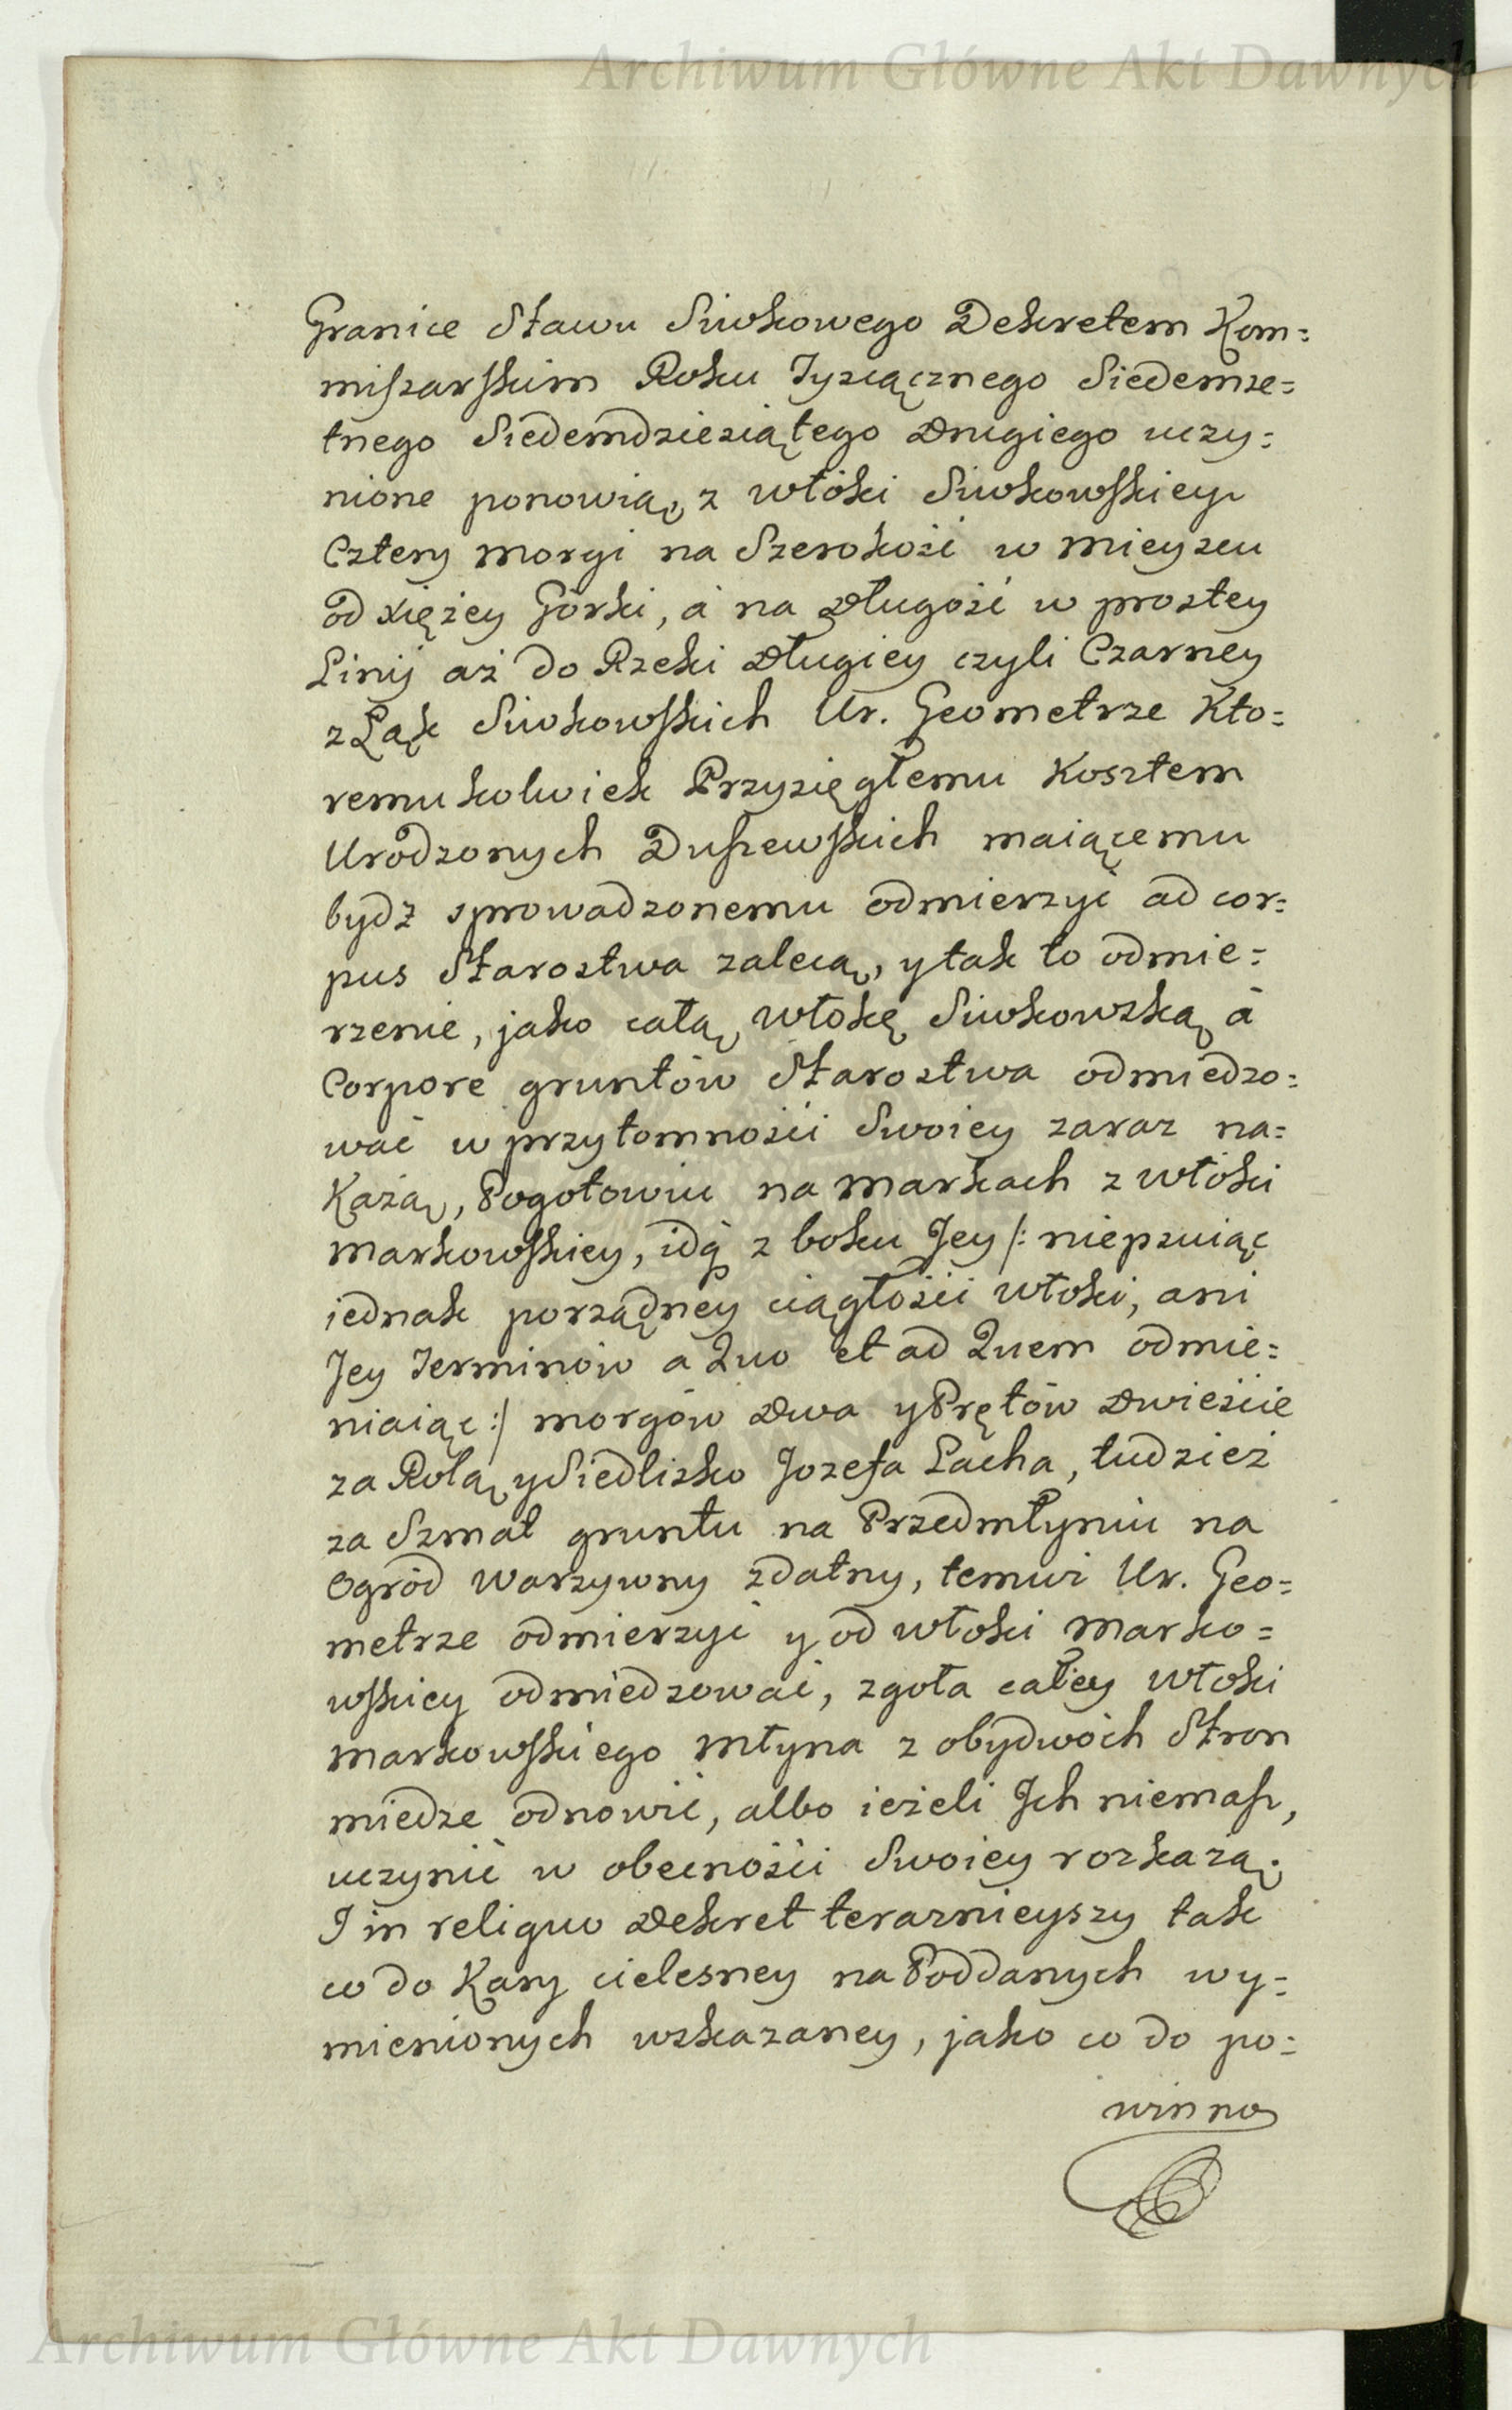 Archiwum Główne Akt Dawnych
Granice Stawu Siwkowego Dekretem Kom=
miszarskim Roku Tysiącznego Siedemse=
tnego Siedemdziesiątego Drugiego uczy=
nione ponowią, z włóki Siwkowskiey
Cztery morgi na Szerokość w mieyscu
od xiężey Górki, á na Długość w prostey
Linij aż do Rzeki Długiey czyli Czarney
z Łąk Siwkowskich Ur. Geometrze Kto=
remukolwiek Przysięgłemu Kosztem
Urodzonych Duszewskich maiącemu
bydź sprowadzonemu odmierzyć ad cor=
pus Starostwa zalecą, y tak to odmie=
rzenie, jako całą włokę Siwkowską á
Corpore gruntów Starostwa odmiedzo=
wać w przytomności Swoiey zaraz na=
Każą, Pogotowiu na Markach z włóki
Markowskiey, idę z boku Jey /: niepsuiąc
iednak porządney ciągłości włoki, ani
Jey Terminów a Quo et ad Quem odmie=
niaiąc :/ morgów Dwa y Prętów Dwieście
za Rolą y Siedlisko Jozefa Lacha, tudzież
za Szmat gruntu na Przedmłyniu na
Ogród warzywny zdatny, temuż Ur. Geo=
metrze odmierzyć y od włoki Marko=
wskiey odmiedzować, zgoła całey włoki
Markowskiego Młyna z obydwóch Stron
miedze odnowić, albo ieżeli Jch niemasz,
uczynić w obecności Swoiey rozkażą.
I in reliquo Dekret teraznieyszy tak
co do Kary cielesney na Poddanych wy=
mienionych wskazaney, jako co do po=
winno
Archiwum Główne Akt Dawnych